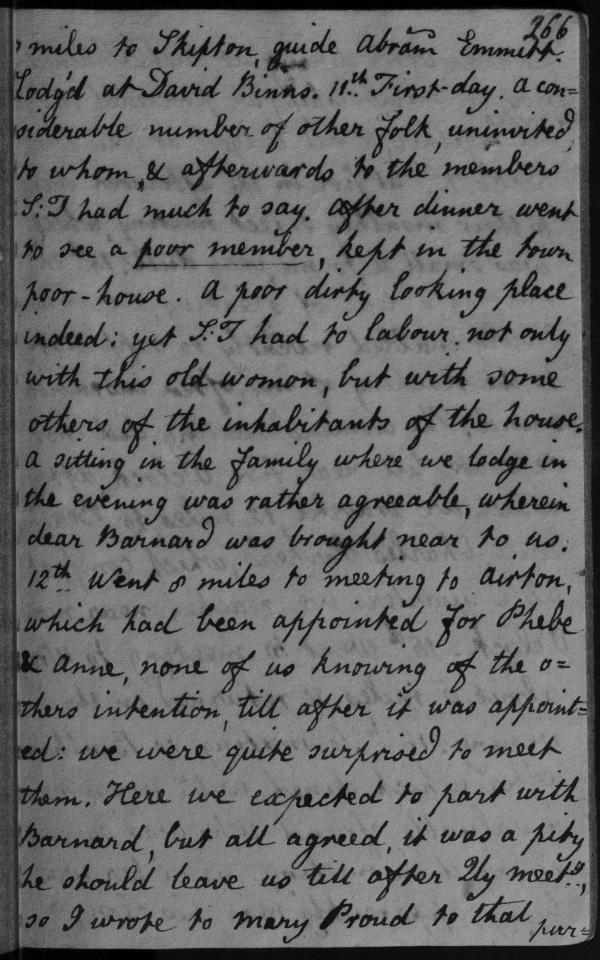 266
8 miles to Skipton, guide Abram Emmitt.
Lodg'd at David Binns. 11th First-day. a con=
siderable number of other folk, uninvited,
to whom, & afterwards to the members
S:T had much to say. After dinner went
to see a poor member, kept in the town
poor-house. A poor dirty looking place
indeed: yet S:T had to labour not only
with this old woman, but with some
others of the inhabitants of the house.
A sitting in the family where we lodge in
the evening was rather agreeable, wherein
dear Barnard was brought near to us.
12th Went 8 miles to meeting to Airton,
which had been appointed for Phebe
& Anne, none of us knowing of the o=
thers intention, till after it was appoint=
ed: we were quite surprised to meet
them. Here we expected to part with
Barnard, but all agreed, it was a pity
he should leave us till after Qly meetg,
so I wrote to Mary Proud to that
pur=